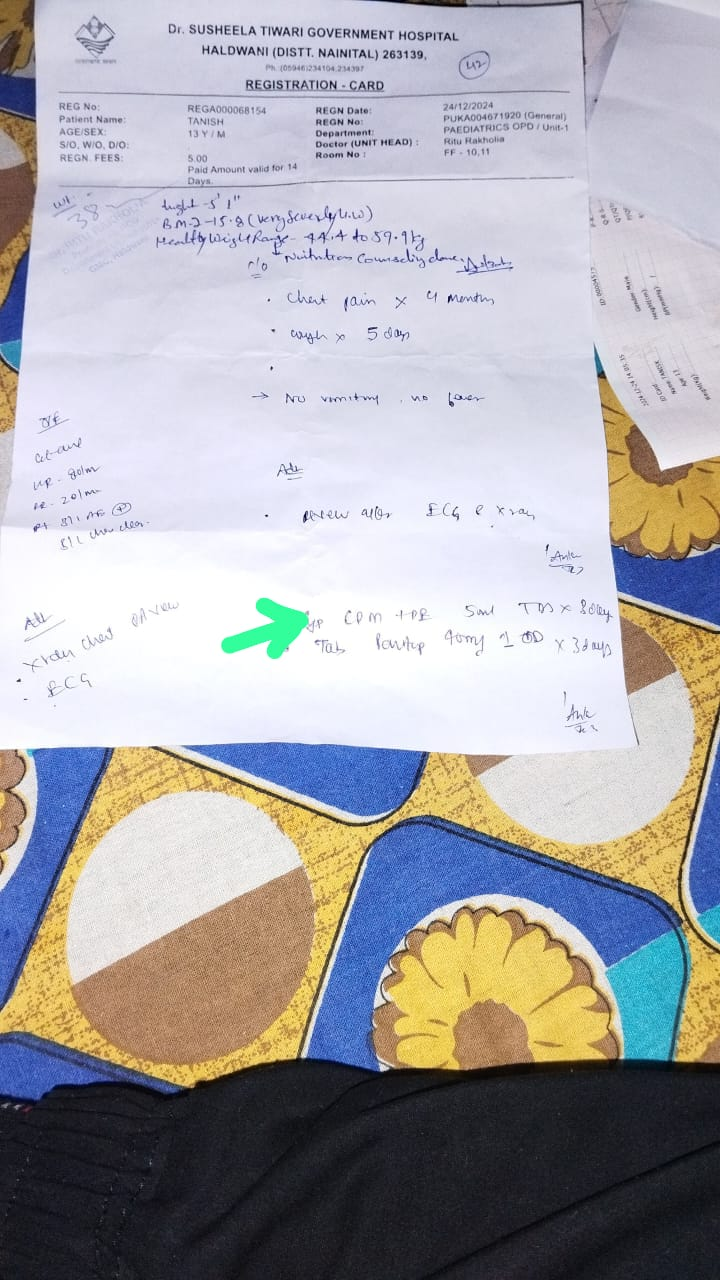 Dr. SUSHEELA TIWARI GOVERNMENT HOSPITAL
HALDWANI (DISTT. NAINITAL) 263139,
Ph. (05946)234104,234397
42
REGISTRATION - CARD
REG No: REGA000068154 REGN Date: 24/12/2024
Patient Name: TANISH REGN No: PUKA004671920 (General)
AGE/SEX: 13 Y / M Department: PAEDIATRICS OPD / Unit-1
S/O, W/O, D/O: Doctor (UNIT HEAD) : Ritu Rakholia
REGN. FEES: 5.00 Room No : FF - 10,11
Paid Amount valid for 14
Days.
Wt.
38
hight - 5' 1"
B.M.I - 15.8 (very Severly U.W)
Healthy Weight Range - 44.4 to 59.9 kg
Nutrition Counseling done.
c/o
• chest pain x 4 months
• cough x 5 days
•
→ No vomiting, no fever
O/E
HR - 80/m
RR - 20/m
Adv
• Review after ECG & xray
Adv
• Xray chest PA view
• ECG
Syp CPM + PE 5ml TDS x
• Tab Pantop 40mg 1 OD x 3 days